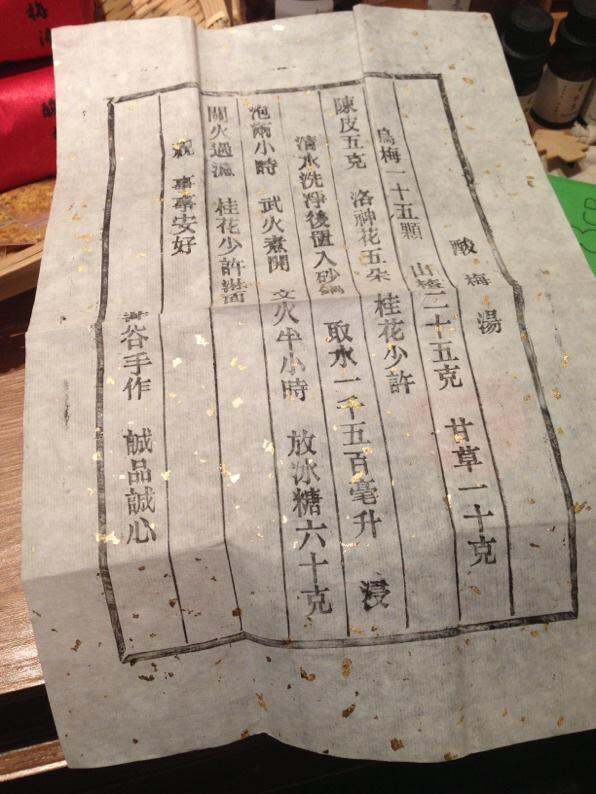 酸梅湯
烏梅一十五顆 山楂二十五克 甘草一十克
陳皮五克 洛神花五朵 桂花少許
清水洗淨後置入砂鍋 取水一千五百毫升 浸
泡兩小時 武火煮開 文火半小時 放冰糖六十克
關火過濾 桂花少許淋面
祝 事事安好
谷手作 誠品誠心
梅